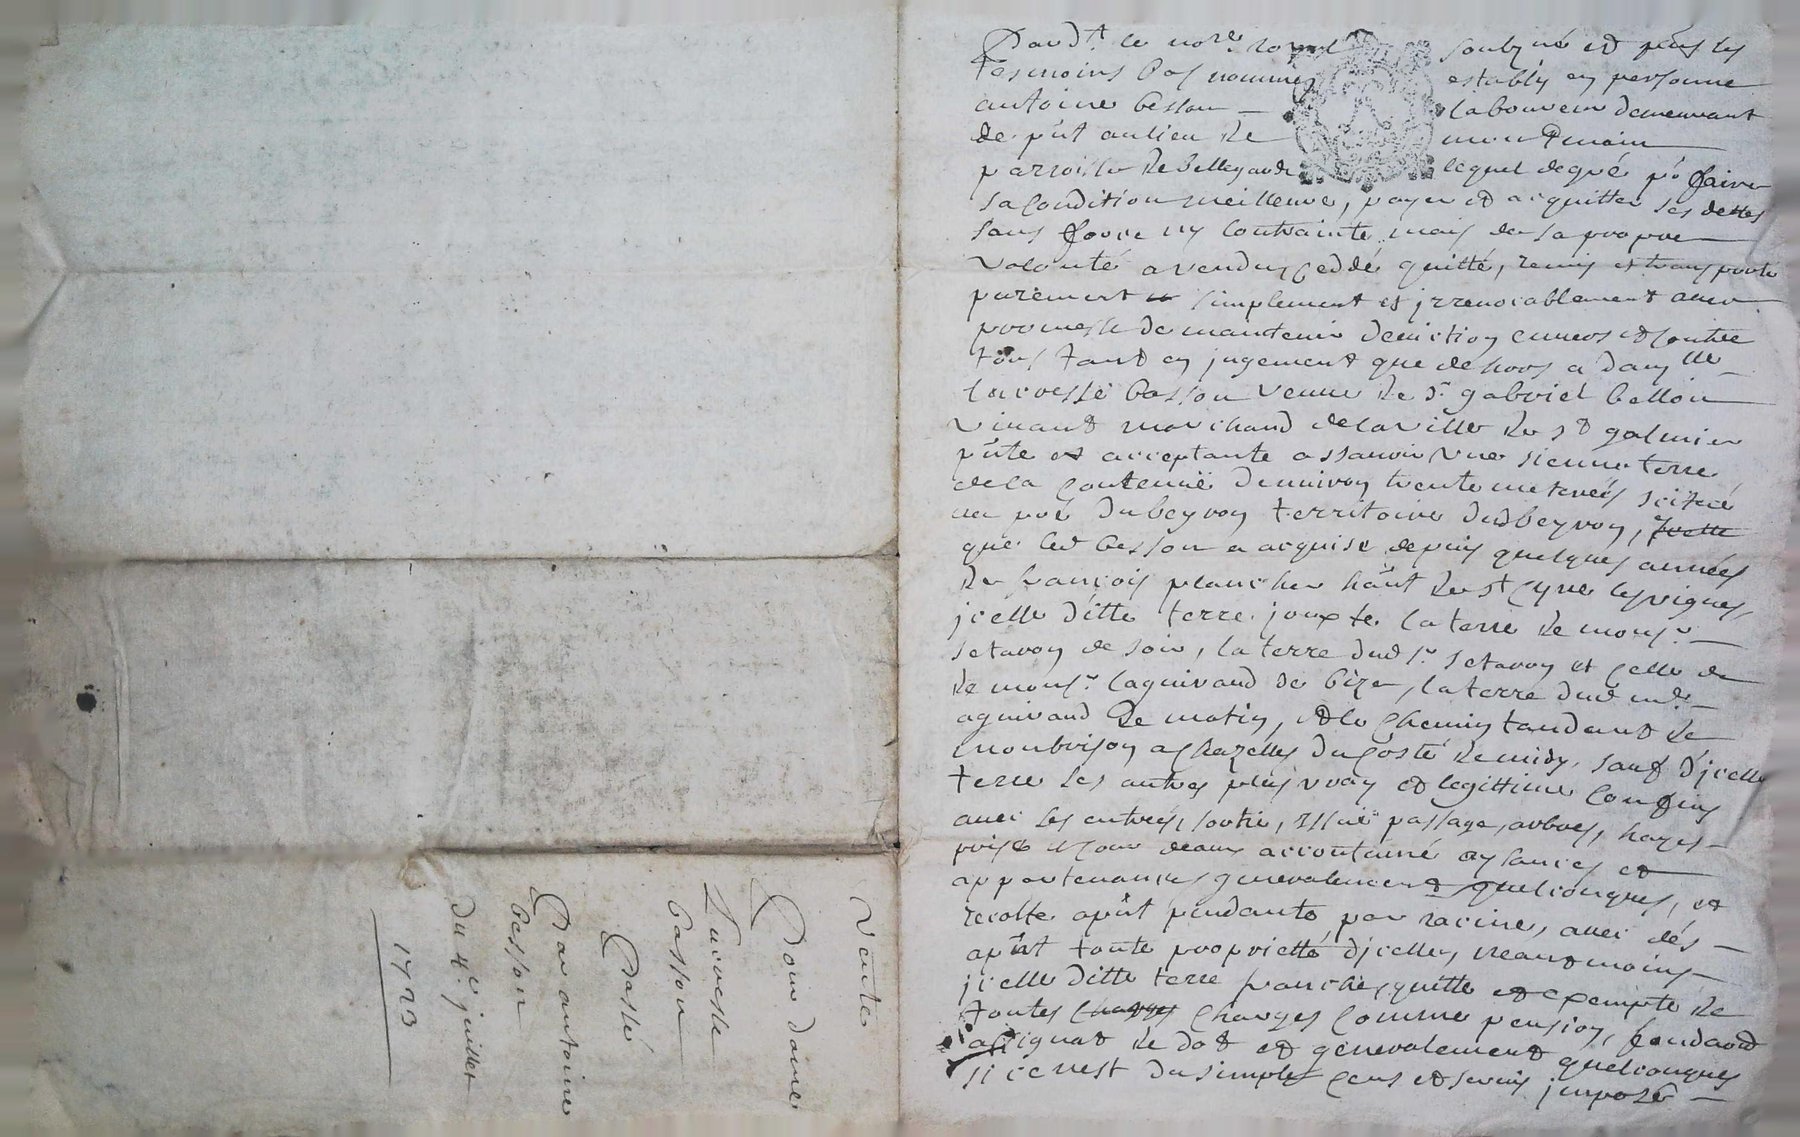 Pard.t le no.re royal soubz.né et pns les
tesmoins bas nommés estably en personne
antoine besson laboureur demeurant
de pnt au lieu de
parroisse de bellegarde lequel de gré po faire
sa condition meilleure, payer et acquitter ses dettes
sans force ny contrainte mais de sa propre
volonté a vendu, ceddé quitté, remis et transporté
purement et simplement et irrevocablement avec
promesse de maintenir d'eviction envers et contre
tous tant en jugement que dehors a dam.lle
lucresse basson veuve de Sr gabriel bellon
vivant marchand de la ville de St galmier
pnte et acceptante assavoir une sienne terre
de la contenüe d'environ trente meterées scituée
au pré du beyron territoire dud beyron,
que led besson a acquise depuis quelques années
de françois plancher haut de St Cyre les vignes,
icelle ditte terre jouxte la terre de mons.r
setaron de soir, la terre dud Sr setaron et celle de
de mons.r laguiraud de bize, la terre dud
aguiraud de matin, et le chemin tandant de
montbrison a chazelles du costé de midy, sauf d'icelle
terre ses autres plus vray et legittime confins
avec ses entrés, sortie, issüe passage, arbres, hayes
prise et cour deaux accoutumé aysances et
appartenances generalement quelconques, et
recolte aprnt pendante par racine, avec dés
aprnt toute proprietté d'icelles, neantmoins
icelle ditte terre franche, quitte et exempte de
toutes charges charges comme pension, fondaõn
assignat de dot et generalement quelconques
si ce n'est du simple cens et servis imposé
Vente
Pour dame
Lucresse
basson
Passé
Par antoine
besson
Du 4e juillet
1723